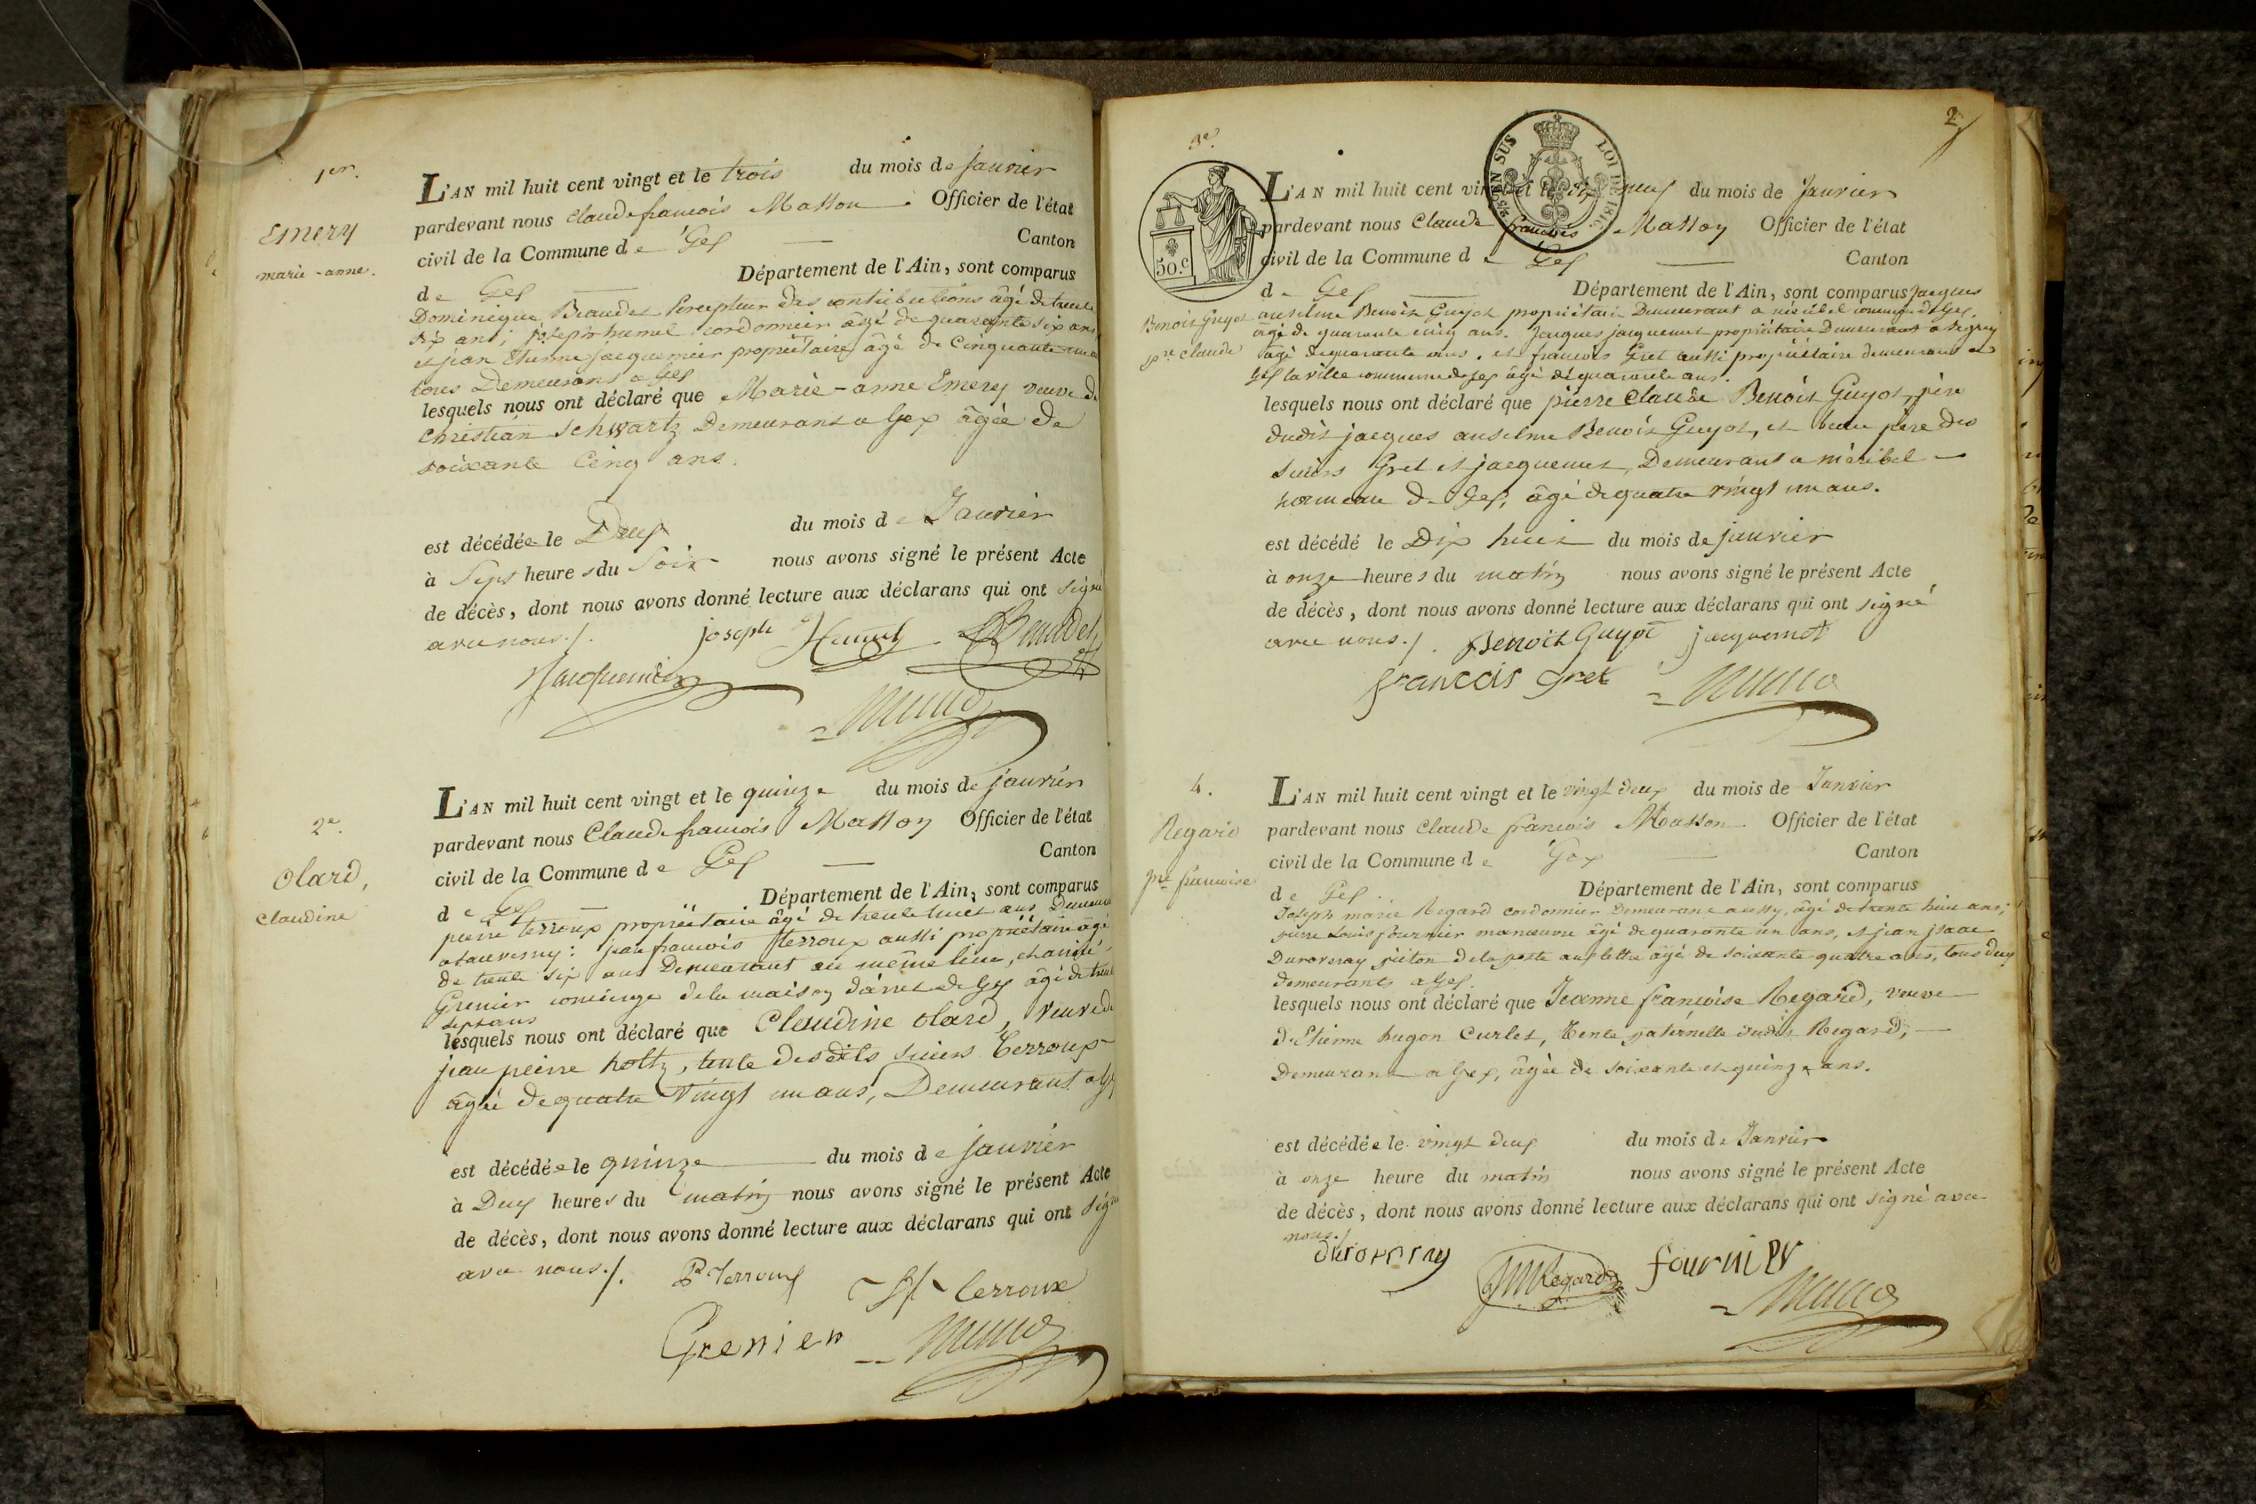 1er.
Emery
marie-anne.
L'AN mil huit cent vingt et le trois du mois de janvier
pardevant nous Claude françois Masson Officier de l'état
civil de la Commune de Gex Canton
de Gex Département de l'Ain, sont comparus
Dominique Beaudet Percepteur des contributions âgé de trente
six ans; joseph humel cordonnier âgé de quarante six ans,
et jean Etienne jacquemier propriétaire âgé de Cinquante
tous Demeurans a Gex
lesquels nous ont déclaré que Marie-anne Emery veuve de
Christian Schwartz Demeurant a Gex âgée de
soixante Cinq ans.
est décédée le Deux du mois de Janvier
à Sept heures du Soir nous avons signé le présent Acte
de décès, dont nous avons donné lecture aux déclarans qui ont signé
avec nous./. joseph Beaudet
2e.
Olard,
Claudine
L'AN mil huit cent vingt et le quinze du mois de janvier
pardevant nous Claude françois Masson Officier de l'état
civil de la Commune de Gex Canton
de Gex Département de l'Ain, sont comparus
pierre terroux propriétaire âgé de trente huit ans Demeurant
a Sauverny; jean françois terroux aussi propriétaire âgé
de trente six ans Demeurant au même lieu, et aimé
Grenier concierge de la maison d'arrêt de Gex âgé de trente
sept ans
lesquels nous ont déclaré que Claudine Olard, veuve de
jean pierre holtz, tente desdits sieurs terroux
âgée de quatre vingt un ans, Demeurant a Gex
est décédée le quinze du mois de janvier
à Deux heures du matin nous avons signé le présent Acte
de décès, dont nous avons donné lecture aux déclarans qui ont signé
avec nous./. Pre Terroux terroux
Grenier
2
3e.
50.c
25 C EN SUS LOI DE 1816
Benoit Guyot
pre claude
L'AN mil huit cent vingt et le dix neuf du mois de Janvier
pardevant nous Claude françois Masson Officier de l'état
civil de la Commune de Gex Canton
de Gex Département de l'Ain, sont comparus Jacques
anselme Benoit Guyot propriétaire Demeurant a méribel commune de Gex,
âgé de quarante cinq ans. Jacques jacquemet propriétaire Demeurant a Segny
âgé de quarante ans. et françois Gret aussi propriétaire demeurant a
Gex la ville commune de Gex âgé de quarante ans.
lesquels nous ont déclaré que pierre Claude Benoit Guyot, père
dudit jacques anselme Benoit Guyot, et beau père des
sieurs Gret et jacquemet, Demeurant a méribel
hameau de Gex, âgé de quatre vingt un ans.
est décédé le Dix huit du mois de janvier
à onze heures du matin nous avons signé le présent Acte
de décès, dont nous avons donné lecture aux déclarans qui ont signé
avec nous./. Benoit Guyot jacquemet
françois gret
4.
Regard
jne françoise
L'AN mil huit cent vingt et le vingt deux du mois de Janvier
pardevant nous Claude françois Masson Officier de l'état
civil de la Commune de Gex Canton
de Gex. Département de l'Ain, sont comparus
Joseph marie Regard cordonnier Demeurant a âgé de trente huit ans;
pierre Louis fournier manoeuvre âgé de quarante un ans, et jean jsaac
Duroveray piéton de la poste aux lettre âgé de soixante quatre ans, tous deux
demeurants a Gex.
lesquels nous ont déclaré que Jeanne françoise Regard, veuve
d'Etienne hugon Curlet, Tente paternelle dudit Regard,
Demeurant a Gex, âgée de soixante et quinze ans.
est décédée le vingt deux du mois de Janvier
à onze heure du matin nous avons signé le présent Acte
de décès, dont nous avons donné lecture aux déclarans qui ont signé avec
nous./
duroveray JM Regard fournier